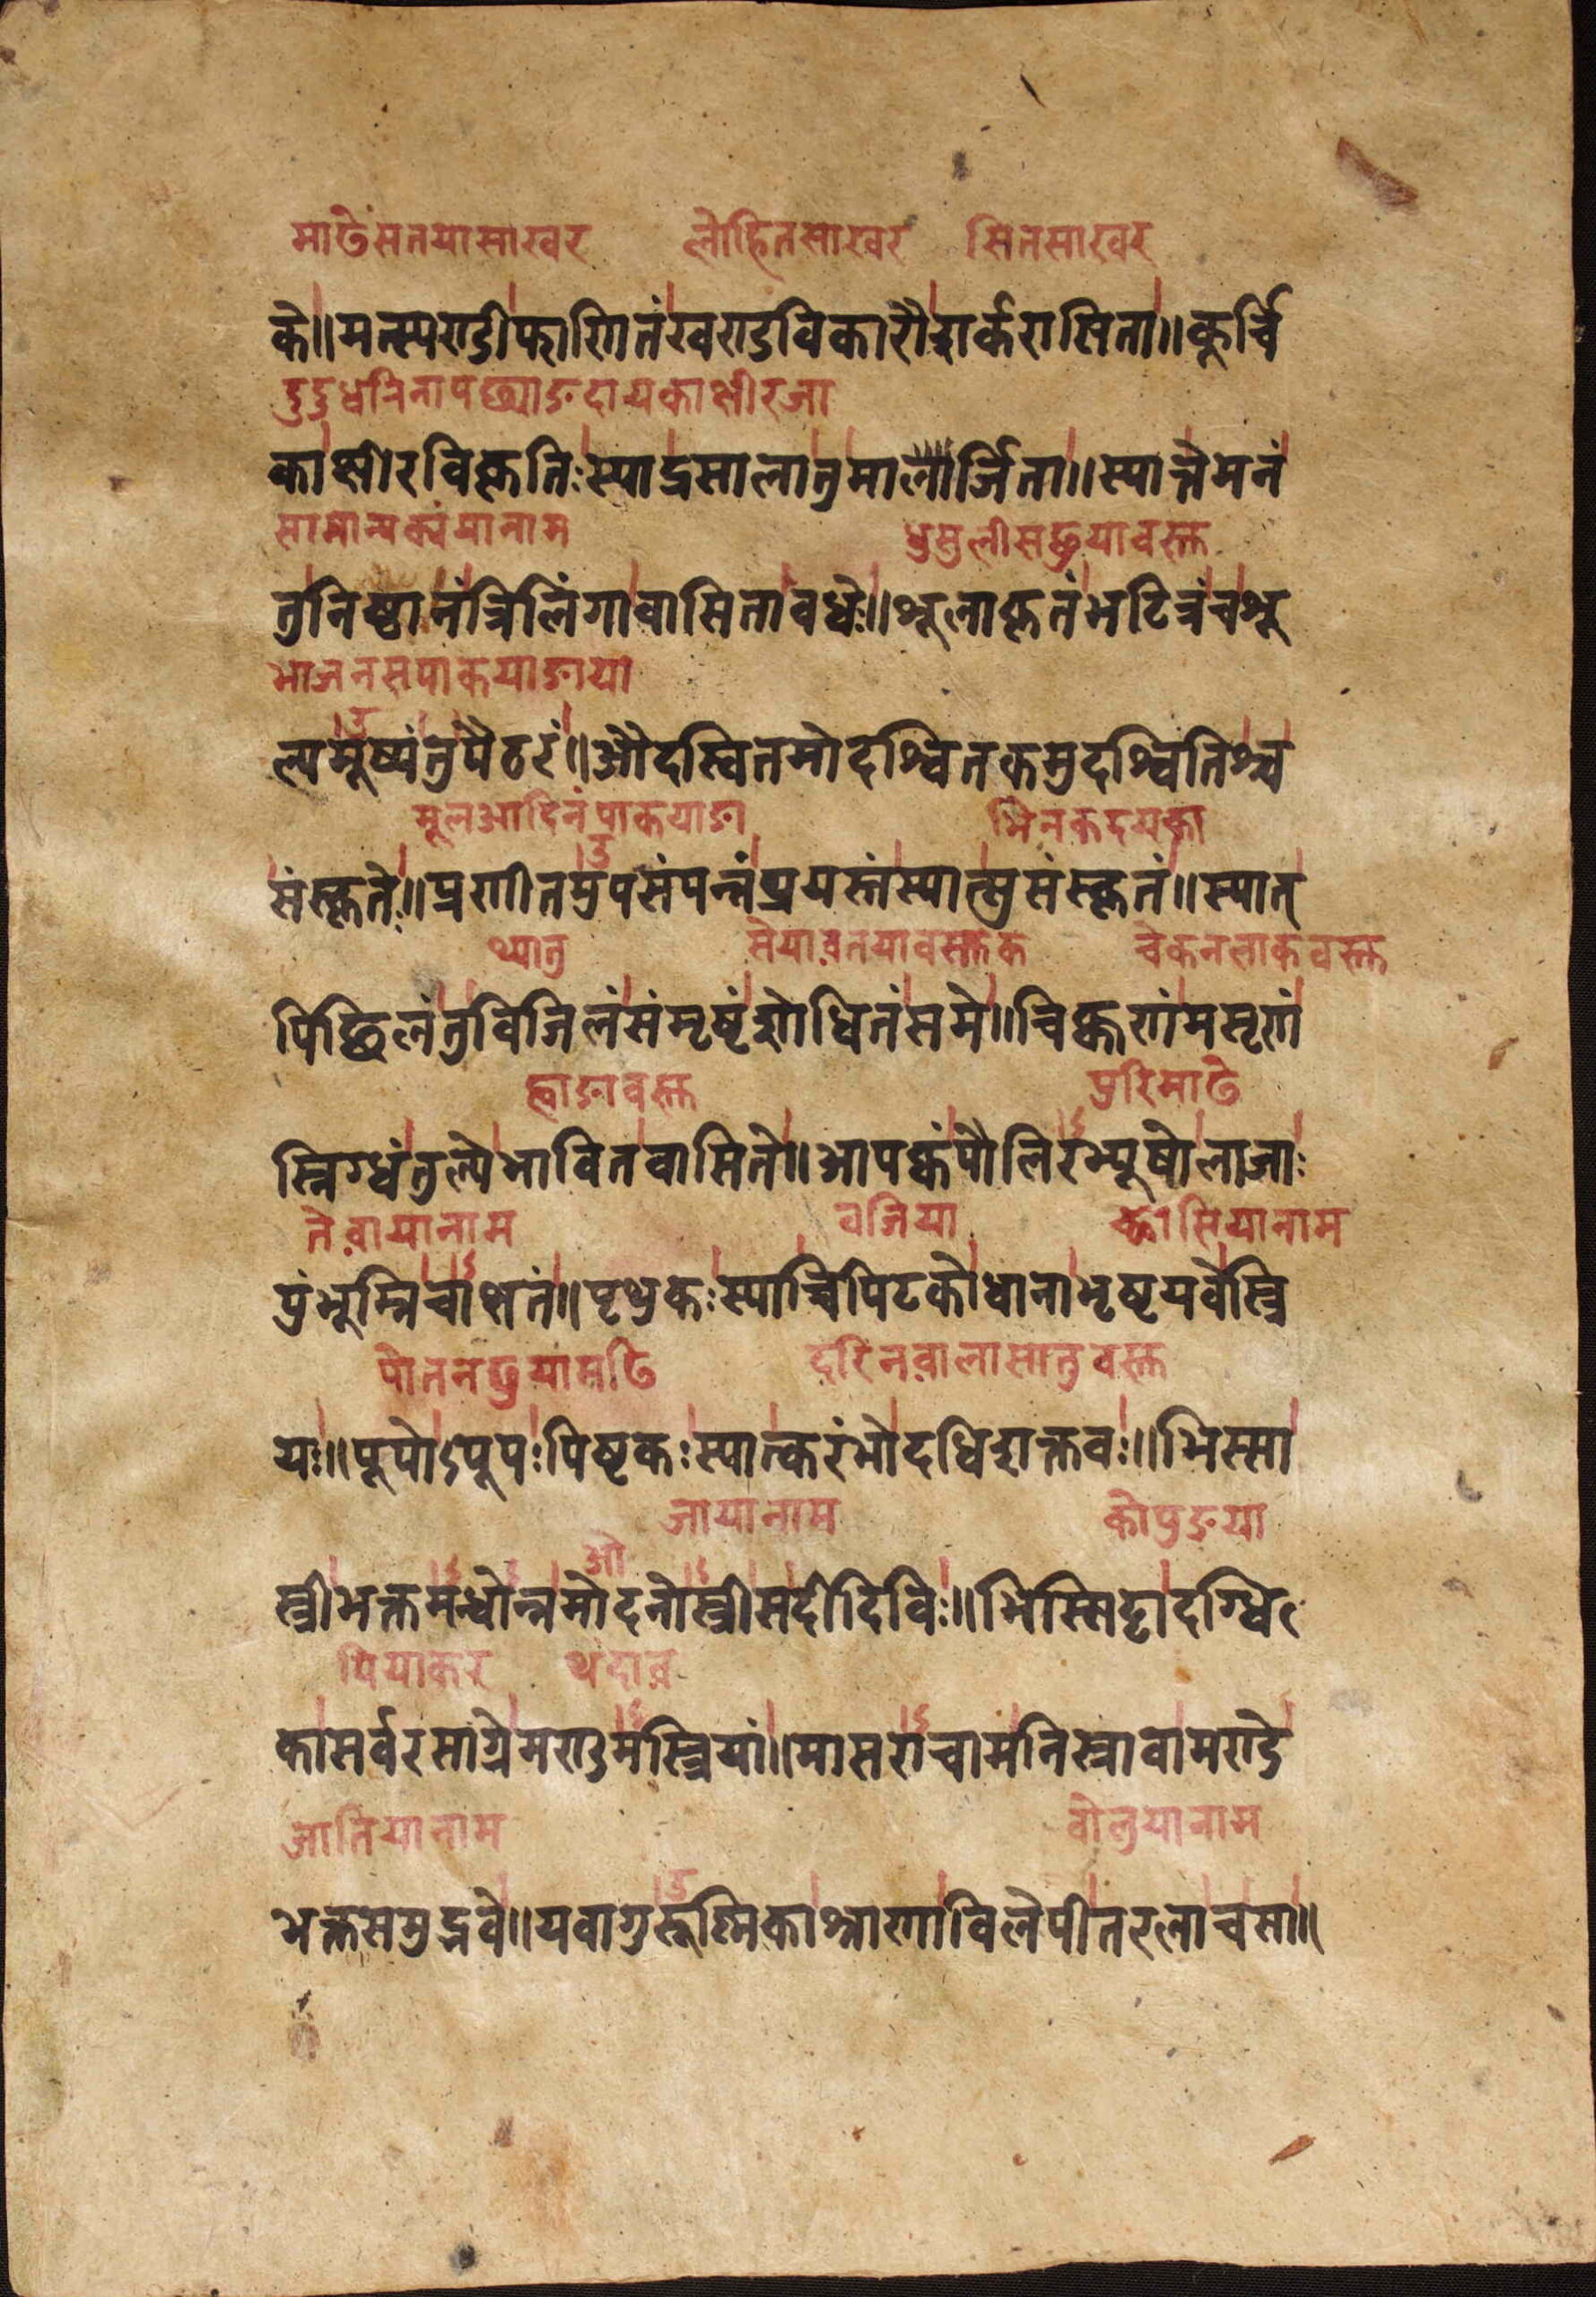 माठेसनयासाखर लोहितसाखर सितसाखर
के॥मत्स्यण्डीफाणितंखण्डविकारौशर्करासिता॥कूर्चि
दुदुधनिनापछ्याङदायकाक्षीरजा
काक्षीरविकृतिःस्याद्रसालातुमार्जिता॥स्यात्तेमनं
सामान्यक्वंयानाम धुमुलीसछुयावस्क्त
तुनिष्ठानंत्रिलिंगावासितावधेः॥शूलाकृतंभटित्रंचशू
भाजनसपाकयाङाया
ल्यमुष्यंतुपैठरं॥औदस्वितमोदश्वितकमुदश्वितिश्च
मूलआदिनंपाकयाङा भिनकदयका
संस्कृते॥प्रणीतमुपसंपन्नंप्रयस्तंस्यात्सुसंस्कृतं॥स्यात्
थ्यातु सेयावतयावस्क्तक चेकनलाकवस्क्त
पिछिलंतुविजिलंसंमृष्टंशोधितंसमे॥चिक्कणंमसृणं
ह्वाङावस्क्त पुरिमाठे
स्निग्धंतुल्येभावितवासिते॥आपक्वंपौलिरभ्यूषोलाजाः
तेवायानाम वजिया च्छासियानाम
पुंभूम्निचाक्षतं॥पृथुकःस्याच्चिपिटकोधानाभृष्टयवेस्त्रि
पोतनछुयामठि दरिनवालासातुवस्क्त
यः॥पूपोऽपूपःपिष्टकःस्यात्करंभोदधिशक्तवः॥भिस्सा
जायानाम कोपुङया
औ
स्त्रीभक्तमन्धोन्नमोदनोस्त्रीसदीदिविः॥भिस्सिट्टादग्धि
पियाकर थदाव
कासर्वरसाग्रेमण्डमस्त्रियां॥मासराचामनिस्रावामण्डे
जातियानाम वोलुयानाम
भक्तसमुद्भवे॥यवागुरूष्णिकाश्राणाविलेपीतरलाचसा॥